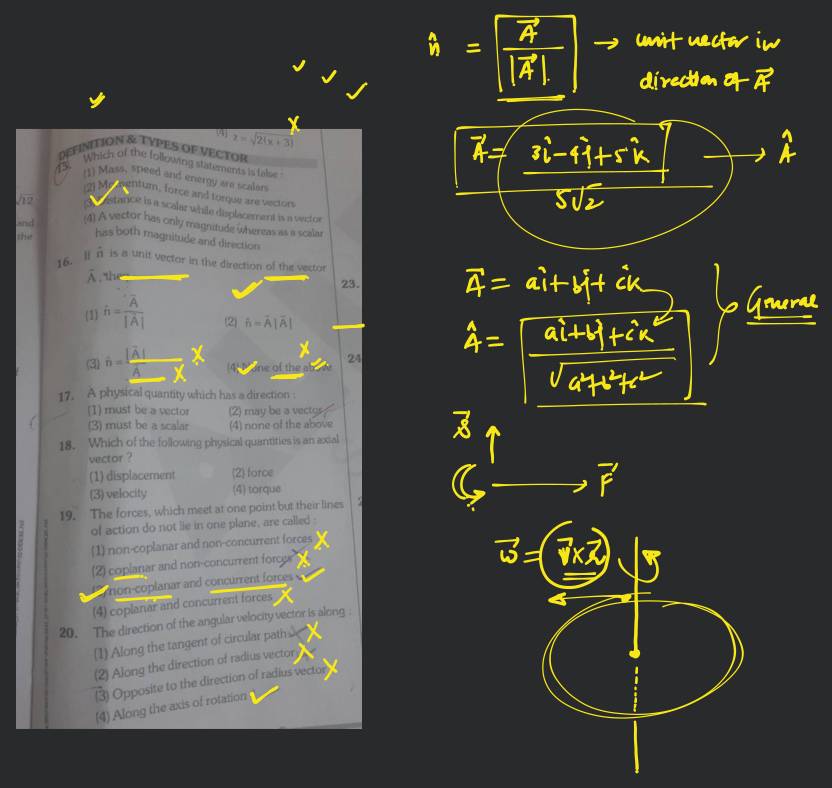 (4) z = √2(x + 3)
DEFINITION & TYPES OF VECTOR
15. Which of the following statements is false :
(1) Mass, speed and energy are scalars
(2) Momentum, force and torque are vectors
(3) Distance is a scalar while displacement is a vector
(4) A vector has only magnitude whereas as a scalar
has both magnitude and direction
16. If n̂ is a unit vector in the direction of the vector
A⃗, then
(1) n̂ = A⃗/|A⃗|
(2) n̂ = A⃗|A⃗|
(3) n̂ = |A⃗|/A⃗
(4) None of the above
17. A physical quantity which has a direction :
(1) must be a vector
(2) may be a vector
(3) must be a scalar
(4) none of the above
18. Which of the following physical quantities is an axial
vector ?
(1) displacement
(2) force
(3) velocity
(4) torque
19. The forces, which meet at one point but their lines
of action do not lie in one plane, are called :
(1) non-coplanar and non-concurrent forces
(2) coplanar and non-concurrent forces
(3) non-coplanar and concurrent forces
(4) coplanar and concurrent forces
20. The direction of the angular velocity vector is along :
(1) Along the tangent of circular path
(2) Along the direction of radius vector
(3) Opposite to the direction of radius vector
(4) Along the axis of rotation
√12
and
the
23.
24
n̂ = A⃗/|A⃗| → unit vector in
direction of A⃗
A⃗ = (3î-4ĵ+5k̂)/5√2 → Â
A⃗ = aî+bĵ+ck̂
Â = (aî+bĵ+ck̂)/√(a²+b²+c²)
General
F⃗